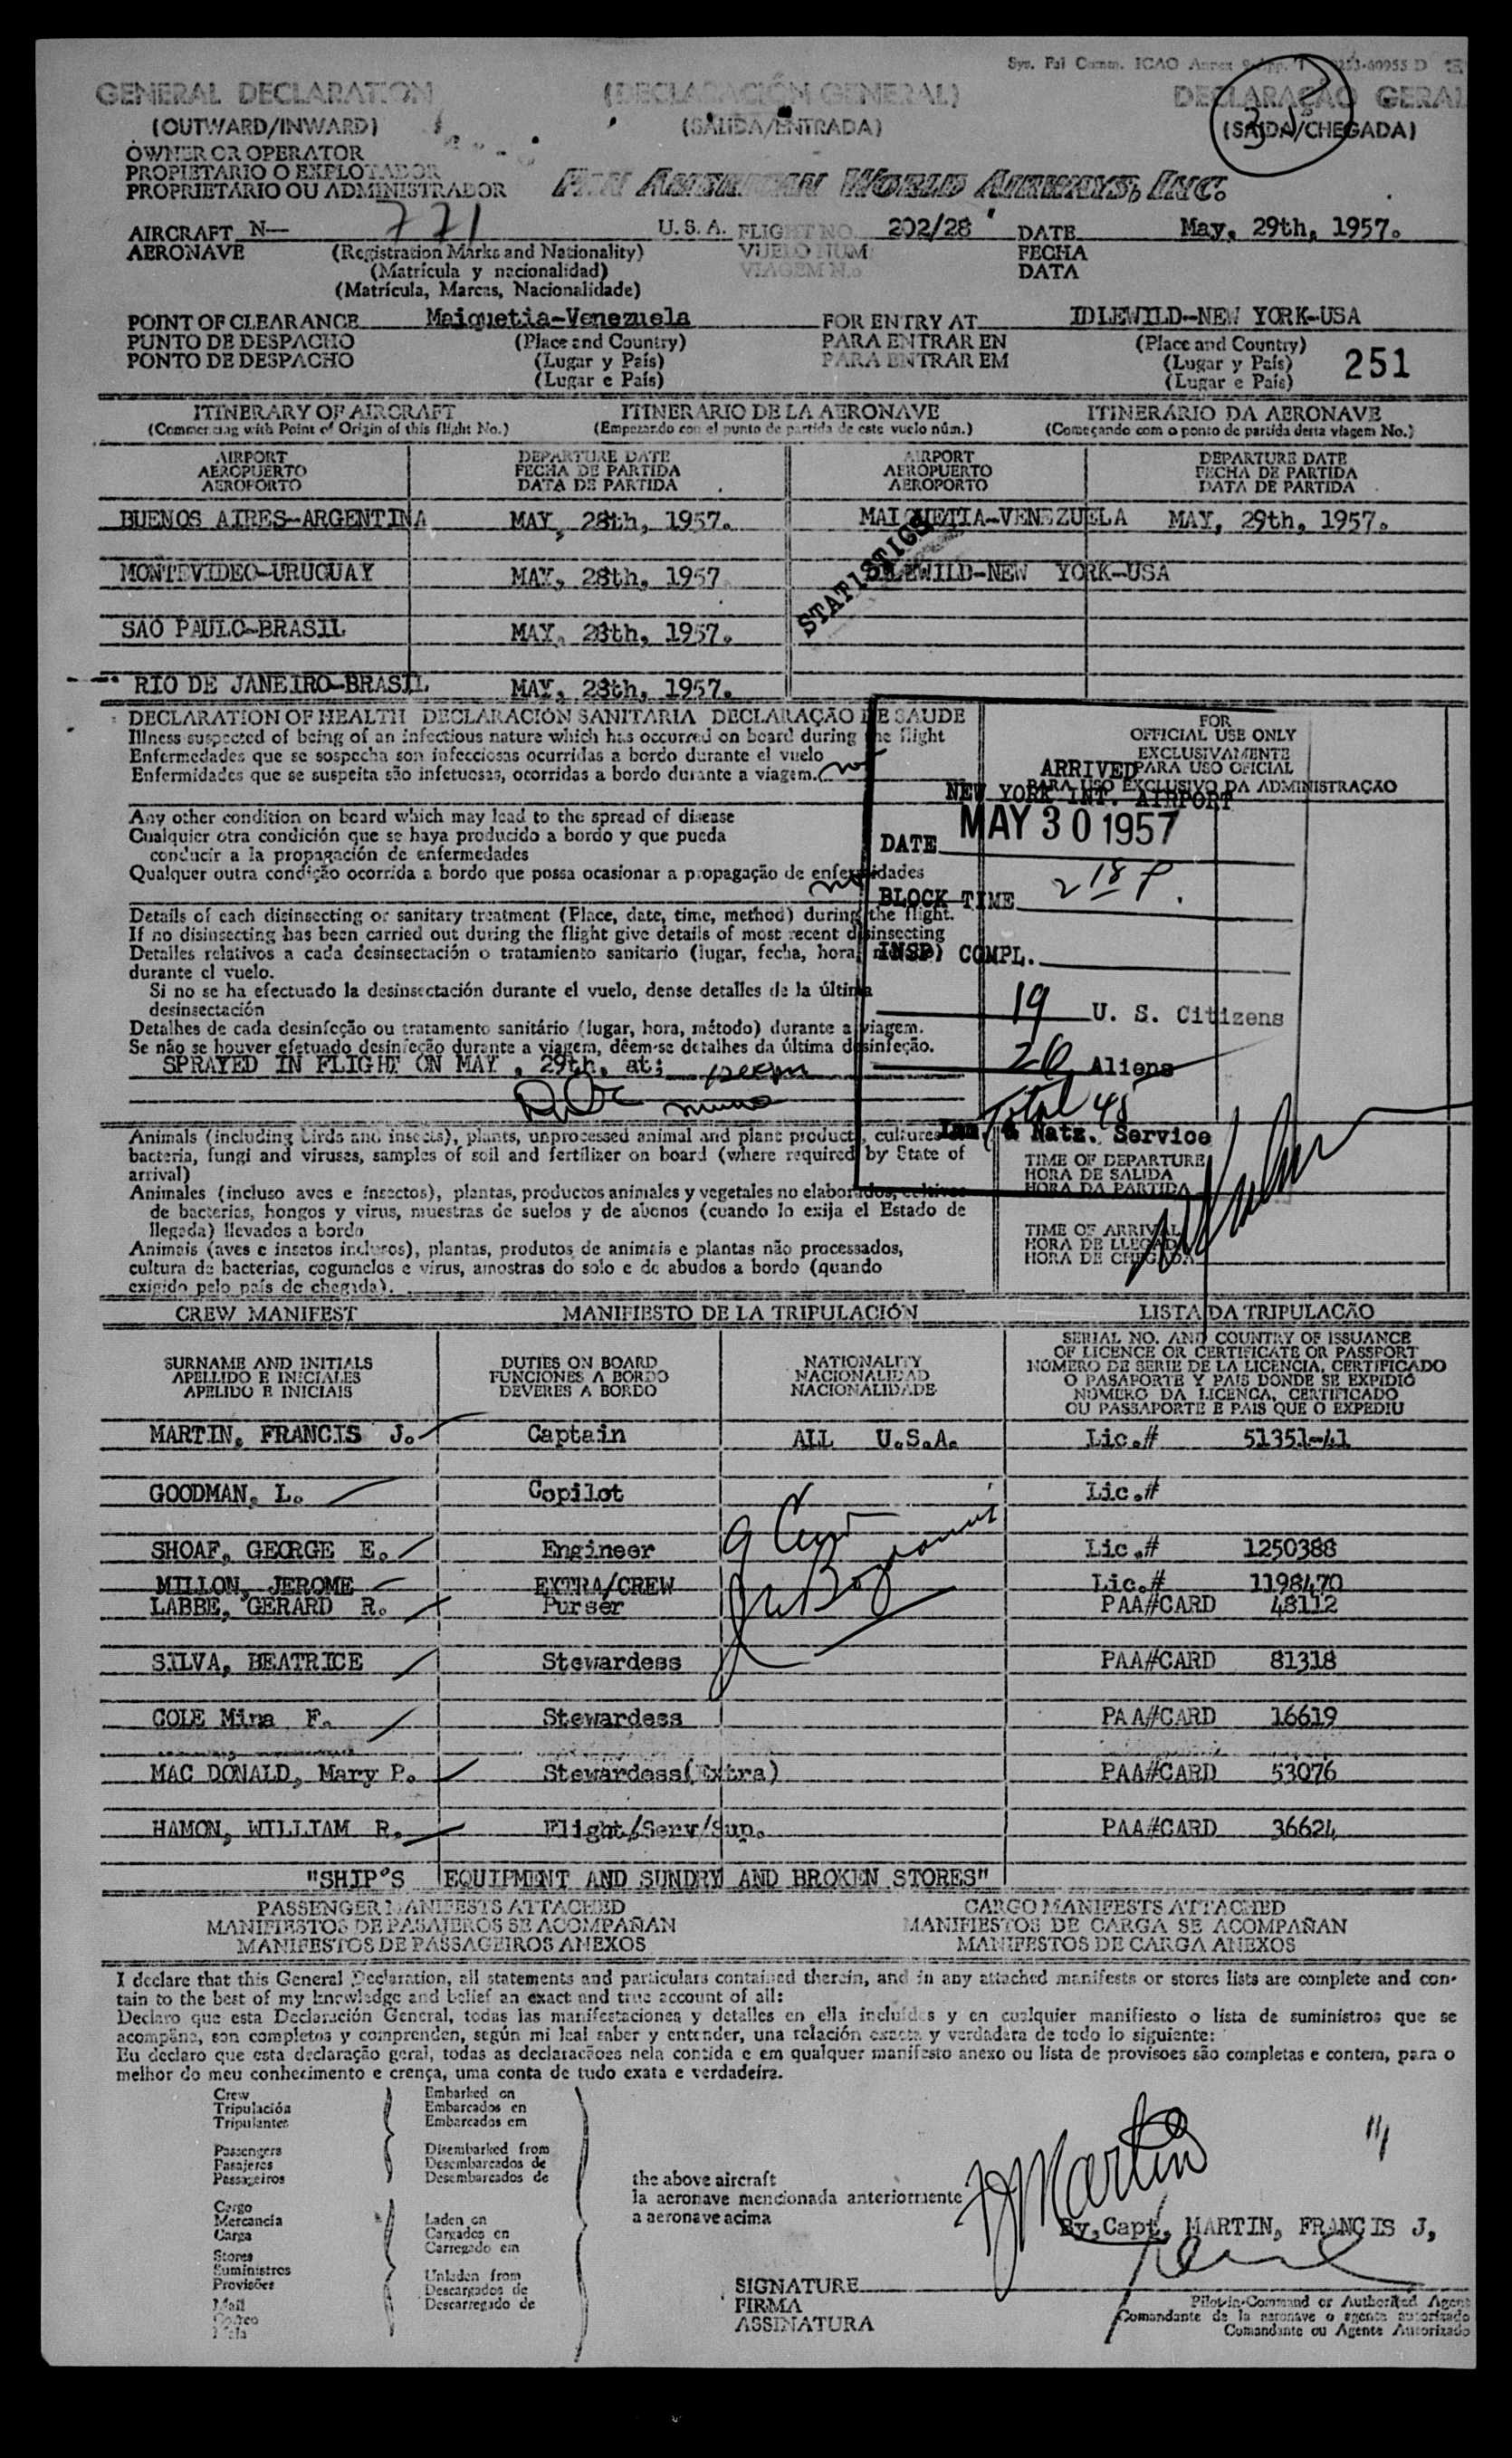 Sys. Fal Comm. ICAO Annex
GENERAL DECLARATION (DECLARACIÓN GENERAL) DECLARAÇÃO GERAL
(OUTWARD/INWARD) (SALIDA/ENTRADA) (SAIDA/CHEGADA)
OWNER OR OPERATOR
PROPIETARIO O EXPLOTADOR
PROPRIETÁRIO OU ADMINISTRADOR PAN AMERICAN WORLD AIRWAYS, INC.
AIRCRAFT N— 771 U. S. A. FLIGHT NO. 202/28 DATE May, 29th, 1957.
AERONAVE (Registration Marks and Nationality) VUELO NUM FECHA
(Matrícula y nacionalidad) VIAGEM N.o DATA
(Matrícula, Marcas, Nacionalidade)
POINT OF CLEARANCE Maiquetia-Venezuela FOR ENTRY AT IDLEWILD-NEW YORK-USA
PUNTO DE DESPACHO (Place and Country) PARA ENTRAR EN (Place and Country)
PONTO DE DESPACHO (Lugar y País) PARA ENTRAR EM (Lugar y País) 251
(Lugar e País) (Lugar e País)
ITINERARY OF AIRCRAFT ITINERARIO DE LA AERONAVE ITINERÁRIO DA AERONAVE
(Commencing with Point of Origin of this flight No.) (Empezando con el punto de partida de este vuelo núm.) (Começando com o ponto de partida desta viagem No.)
AIRPORT DEPARTURE DATE AIRPORT DEPARTURE DATE
AEROPUERTO FECHA DE PARTIDA AEROPUERTO FECHA DE PARTIDA
AEROPORTO DATA DE PARTIDA AEROPORTO DATA DE PARTIDA
BUENOS AIRES-ARGENTINA MAY, 28th, 1957. MAIQUETIA-VENEZUELA MAY, 29th, 1957.
STATISTICS
MONTEVIDEO-URUGUAY MAY, 28th, 1957 IDLEWILD-NEW YORK-USA
SAO PAULO-BRASIL MAY, 28th, 1957.
RIO DE JANEIRO-BRASIL MAY, 28th, 1957.
DECLARATION OF HEALTH DECLARACIÓN SANITARIA DECLARAÇÃO DE SAUDE
Illness suspected of being of an infectious nature which has occurred on board during the flight
Enfermedades que se sospecha son infecciosas ocurridas a bordo durante el vuelo
Enfermidades que se suspeita são infetuosas, ocorridas a bordo durante a viagem. no
Any other condition on board which may lead to the spread of disease
Cualquier otra condición que se haya producido a bordo y que pueda
conducir a la propagación de enfermedades
Qualquer outra condição ocorrida a bordo que possa ocasionar a propagação de enfermidades
no
Details of each disinsecting or sanitary treatment (Place, date, time, method) during the flight.
If no disinsecting has been carried out during the flight give details of most recent disinsecting
Detalles relativos a cada desinsectación o tratamiento sanitario (lugar, fecha, hora, método)
durante el vuelo.
Si no se ha efectuado la desinsectación durante el vuelo, dense detalles de la última
desinsectación
Detalhes de cada desinfecção ou tratamento sanitário (lugar, hora, método) durante a viagem.
Se não se houver efetuado desinfeção durante a viagem, dêem-se detalhes da última desinfeção.
SPRAYED IN FLIGHT ON MAY , 29th, at:
Animals (including birds and insects), plants, unprocessed animal and plant products, cultures
bacteria, fungi and viruses, samples of soil and fertilizer on board (where required by State of
arrival)
Animales (incluso aves e insectos), plantas, productos animales y vegetales no elaborados, cultivos
de bacterias, hongos y virus, muestras de suelos y de abonos (cuando lo exija el Estado de
llegada) llevados a bordo
Animais (aves e insetos inclusos), plantas, produtos de animais e plantas não processados,
cultura de bacterias, cogumelos e virus, amostras do solo e de abudos a bordo (quando
exigido pelo país de chegada).
FOR
OFFICIAL USE ONLY
EXCLUSIVAMENTE
PARA USO OFICIAL
PARA USO EXCLUSIVO DA ADMINISTRAÇÃO
ARRIVED
NEW YORK INT. AIRPORT
DATE MAY 30 1957
BLOCK TIME 2 18 P.
INSP COMPL.
19 U. S. Citizens
26 Aliens
Total 45
Imm. & Natz. Service
TIME OF DEPARTURE
HORA DE SALIDA
HORA DA PARTIDA
TIME OF ARRIVAL
HORA DE LLEGADA
HORA DE CHEGADA
CREW MANIFEST MANIFIESTO DE LA TRIPULACIÓN LISTA DA TRIPULAÇÃO
SURNAME AND INITIALS DUTIES ON BOARD NATIONALITY SERIAL NO. AND COUNTRY OF ISSUANCE
APELLIDO E INICIALES FUNCIONES A BORDO NACIONALIDAD OF LICENCE OR CERTIFICATE OR PASSPORT
APELIDO E INICIAIS DEVERES A BORDO NACIONALIDADE NÚMERO DE SERIE DE LA LICENCIA, CERTIFICADO
O PASAPORTE Y PAIS DONDE SE EXPIDIÓ
NÚMERO DA LICENCA, CERTIFICADO
OU PASSAPORTE E PAIS QUE O EXPEDIU
MARTIN, FRANCIS J. Captain ALL U.S.A. Lic.# 51351-41
GOODMAN, L. Copilot Lic.#
SHOAF, GEORGE E. Engineer Lic.# 1250388
MILLON, JEROME EXTRA/CREW Lic.# 1198470
LABBE, GERARD R. Purser PAA#CARD 48112
SILVA, BEATRICE Stewardess PAA#CARD 81318
COLE Mina F. Stewardess PAA#CARD 16619
MAC DONALD, Mary P. Stewardess(Extra) PAA#CARD 53076
HAMON, WILLIAM R. Flight/Serv/Sup. PAA#CARD 36624
"SHIP'S EQUIPMENT AND SUNDRY AND BROKEN STORES"
PASSENGER MANIFESTS ATTACHED CARGO MANIFESTS ATTACHED
MANIFIESTOS DE PASAJEROS SE ACOMPAÑAN MANIFIESTOS DE CARGA SE ACOMPAÑAN
MANIFESTOS DE PASSAGEIROS ANEXOS MANIFESTOS DE CARGA ANEXOS
I declare that this General Declaration, all statements and particulars contained therein, and in any attached manifests or stores lists are complete and con-
tain to the best of my knowledge and belief an exact and true account of all:
Declaro que esta Declaración General, todas las manifestaciones y detalles en ella incluídes y en cualquier manifiesto o lista de suministros que se
acompáne, son completos y comprenden, según mi leal saber y entender, una relación exacta y verdadera de todo lo siguiente:
Eu declaro que esta declaração geral, todas as declaracãoes nela contida e em qualquer manifesto anexo ou lista de provisoes são completas e contem, para o
melhor do meu conhecimento e crença, uma conta de tudo exata e verdadeira.
Crew Embarked on
Tripulación Embarcados en
Tripulantes Embarcados em
Passengers Disembarked from
Pasajeros Desembarcados de
Passageiros Desembarcados de
the above aircraft
la aeronave mencionada anteriormente
a aeronave acima
Cargo
Mercancía Laden on
Carga Cargados en
Carregado em
Stores
Suministros Unladen from
Provisões Descargados de
Mail Descarregado de
Correo
Mala
FJMartin
By,Capt, MARTIN, FRANCIS J,
SIGNATURE
FIRMA
ASSINATURA
Pilot-in-Command or Authorized Agent
Comandante de la aeronave o agente autorizado
Comandante ou Agente Autorizado